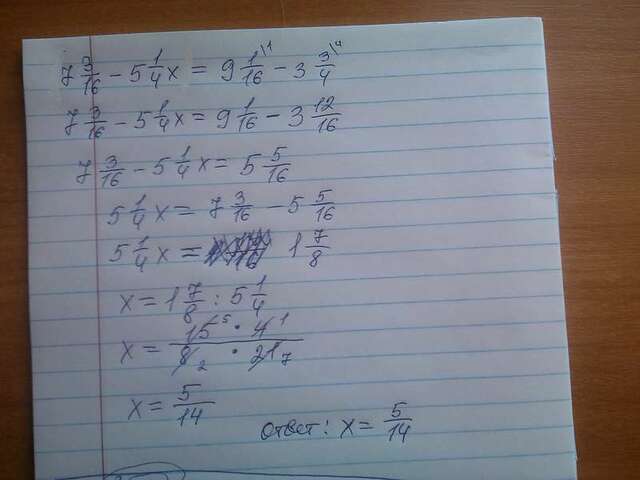 7 3/16 − 5 1/4 x = 9 1/16 \1 − 3 3/4 \4
7 3/16 − 5 1/4 x = 9 1/16 − 3 12/16
7 3/16 − 5 1/4 x = 5 5/16
5 1/4 x = 7 3/16 − 5 5/16
5 1/4 x = 1 7/8
x = 1 7/8 : 5 1/4
x = 15 5 · 4 1 / 8 2 · 21 7
x = 5/14
ответ: x = 5/14